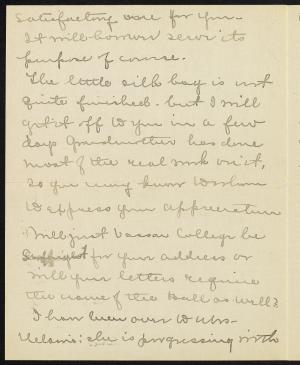 satisfactory one for you.
It will however serve its
purpose of course.
The little silk bag is not
quite finished. but I will
get it off to you in a few
days Grandmother has done
most of the real work on it,
so you may know to whom
to express your appreciation
Will just Vassar College be
sufficient for your address or
will your letters require
the name of the Hall as well?
I have been over to Mrs.
she is progressing with